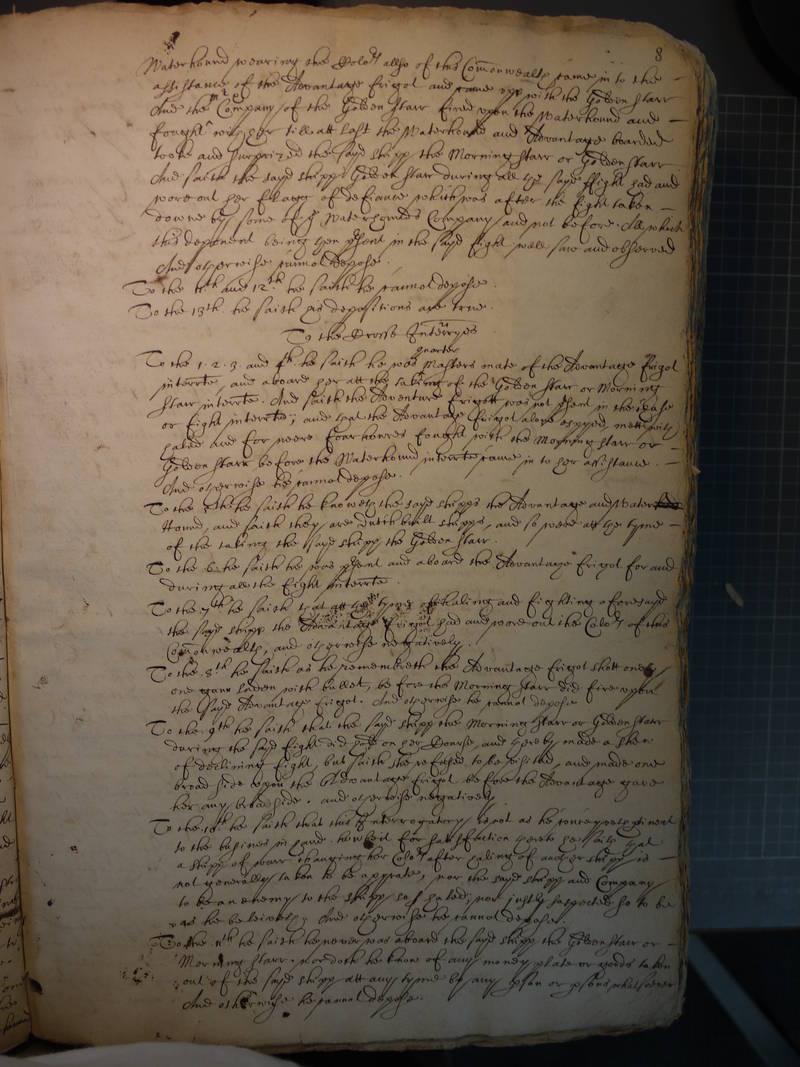 8
Waterhound wearing the Colo:rs allso of this Com̄onwealth came in to the
assistance of the Advantage frigot and came upp with the Golden Starr
And the Company of the Golden Starr fired upon the Waterhound and
fought with her till att last the Waterhound and Advantage boarded
tooke and surprized the sayd shipp the Morning Starr or Golden Starr
And saith the sayd shipp Golden Starr during all the sayd fight had and
wore out her flagg of defiance which was after the fight taken
downe by some of the Waterhounds Company and not before. All which
this deponent being then p̄sent in the sayd fight well saw and observed
And otherwise cannot depose.
To the 11th and 12th. he saith he cannot depose.
To the 13th. he saith his depositions are true.
To the Crosse Interryes
To the 1. 2. 3. and 4th. he saith he was quarter Masters mate of the Advantage frigot
interrte, and aboard her att the taking of the Golden Starr or Morning
Starr interrte. And saith the Adventure frigott was not p̄sent in the chase
or fight interrte; and that the Advantage frigot alone espyed mett with
haled And for neere foarhoures fought with the Morning Starr or
Golden Starr before the Waterhound interrte came in to her assistance.
And otherwise he cannot depose.
To the 5th he saith he knoweth the sayd shipps the Advantage and Water
Hound, and saith they are dutch built shipps, and so were att the tyme
of the taking the sayd shipp the Golden Starr.
To the 6. he saith he was p̄sent and aboard the Advantage frigot for and
during all the fight interrte.
To the 7th he saith that att the tyme of haling and fighting aforesayd
the sayd shipp the Advantage frigot had and wore out the Colo:rs of this
Com̄onwealth, and otherwise negatively.
To the 8th he saith as he remembreth the Advantage frigot shott onely
one gunn laden with bullet, before the Morning Starr did fire upon
the sayd Advantage frigot. And otherwise he cannot depose
To the 9th he saith that the sayd shipp the Morning Starr or Golden Starr
during the sayd fight did on her Course, and thereby made a shew
of declining fight, but saith she refused to be visited, and made one
broad side upon the Advantage frigot before the Advantage gave
her any broadside. and otherwise negatively.
To the 10th. he saith that this Interrogatory is not as he conceyveth pertinent
to the busines in hand. howbeit for satisfaction hereto he saith that
a shipp of warr changing her Colo:rs after haling of another shipp is
not generally taken to be a pyrate, nor the sayd shipp and Company
to be an enemy to the shipp so haled; nor justly suspected so to be
as he beleiveth; And otherwise he cannot depose.
To the 11th he saith he never was aboard the sayd shipp the Golden Starr or
Morning Starr. nor doth he know of any money plate or goods taken
out of the sayd shipp att any tyme by any p̄son or p̄sons whatsoever
And otherwise he cannot depose.